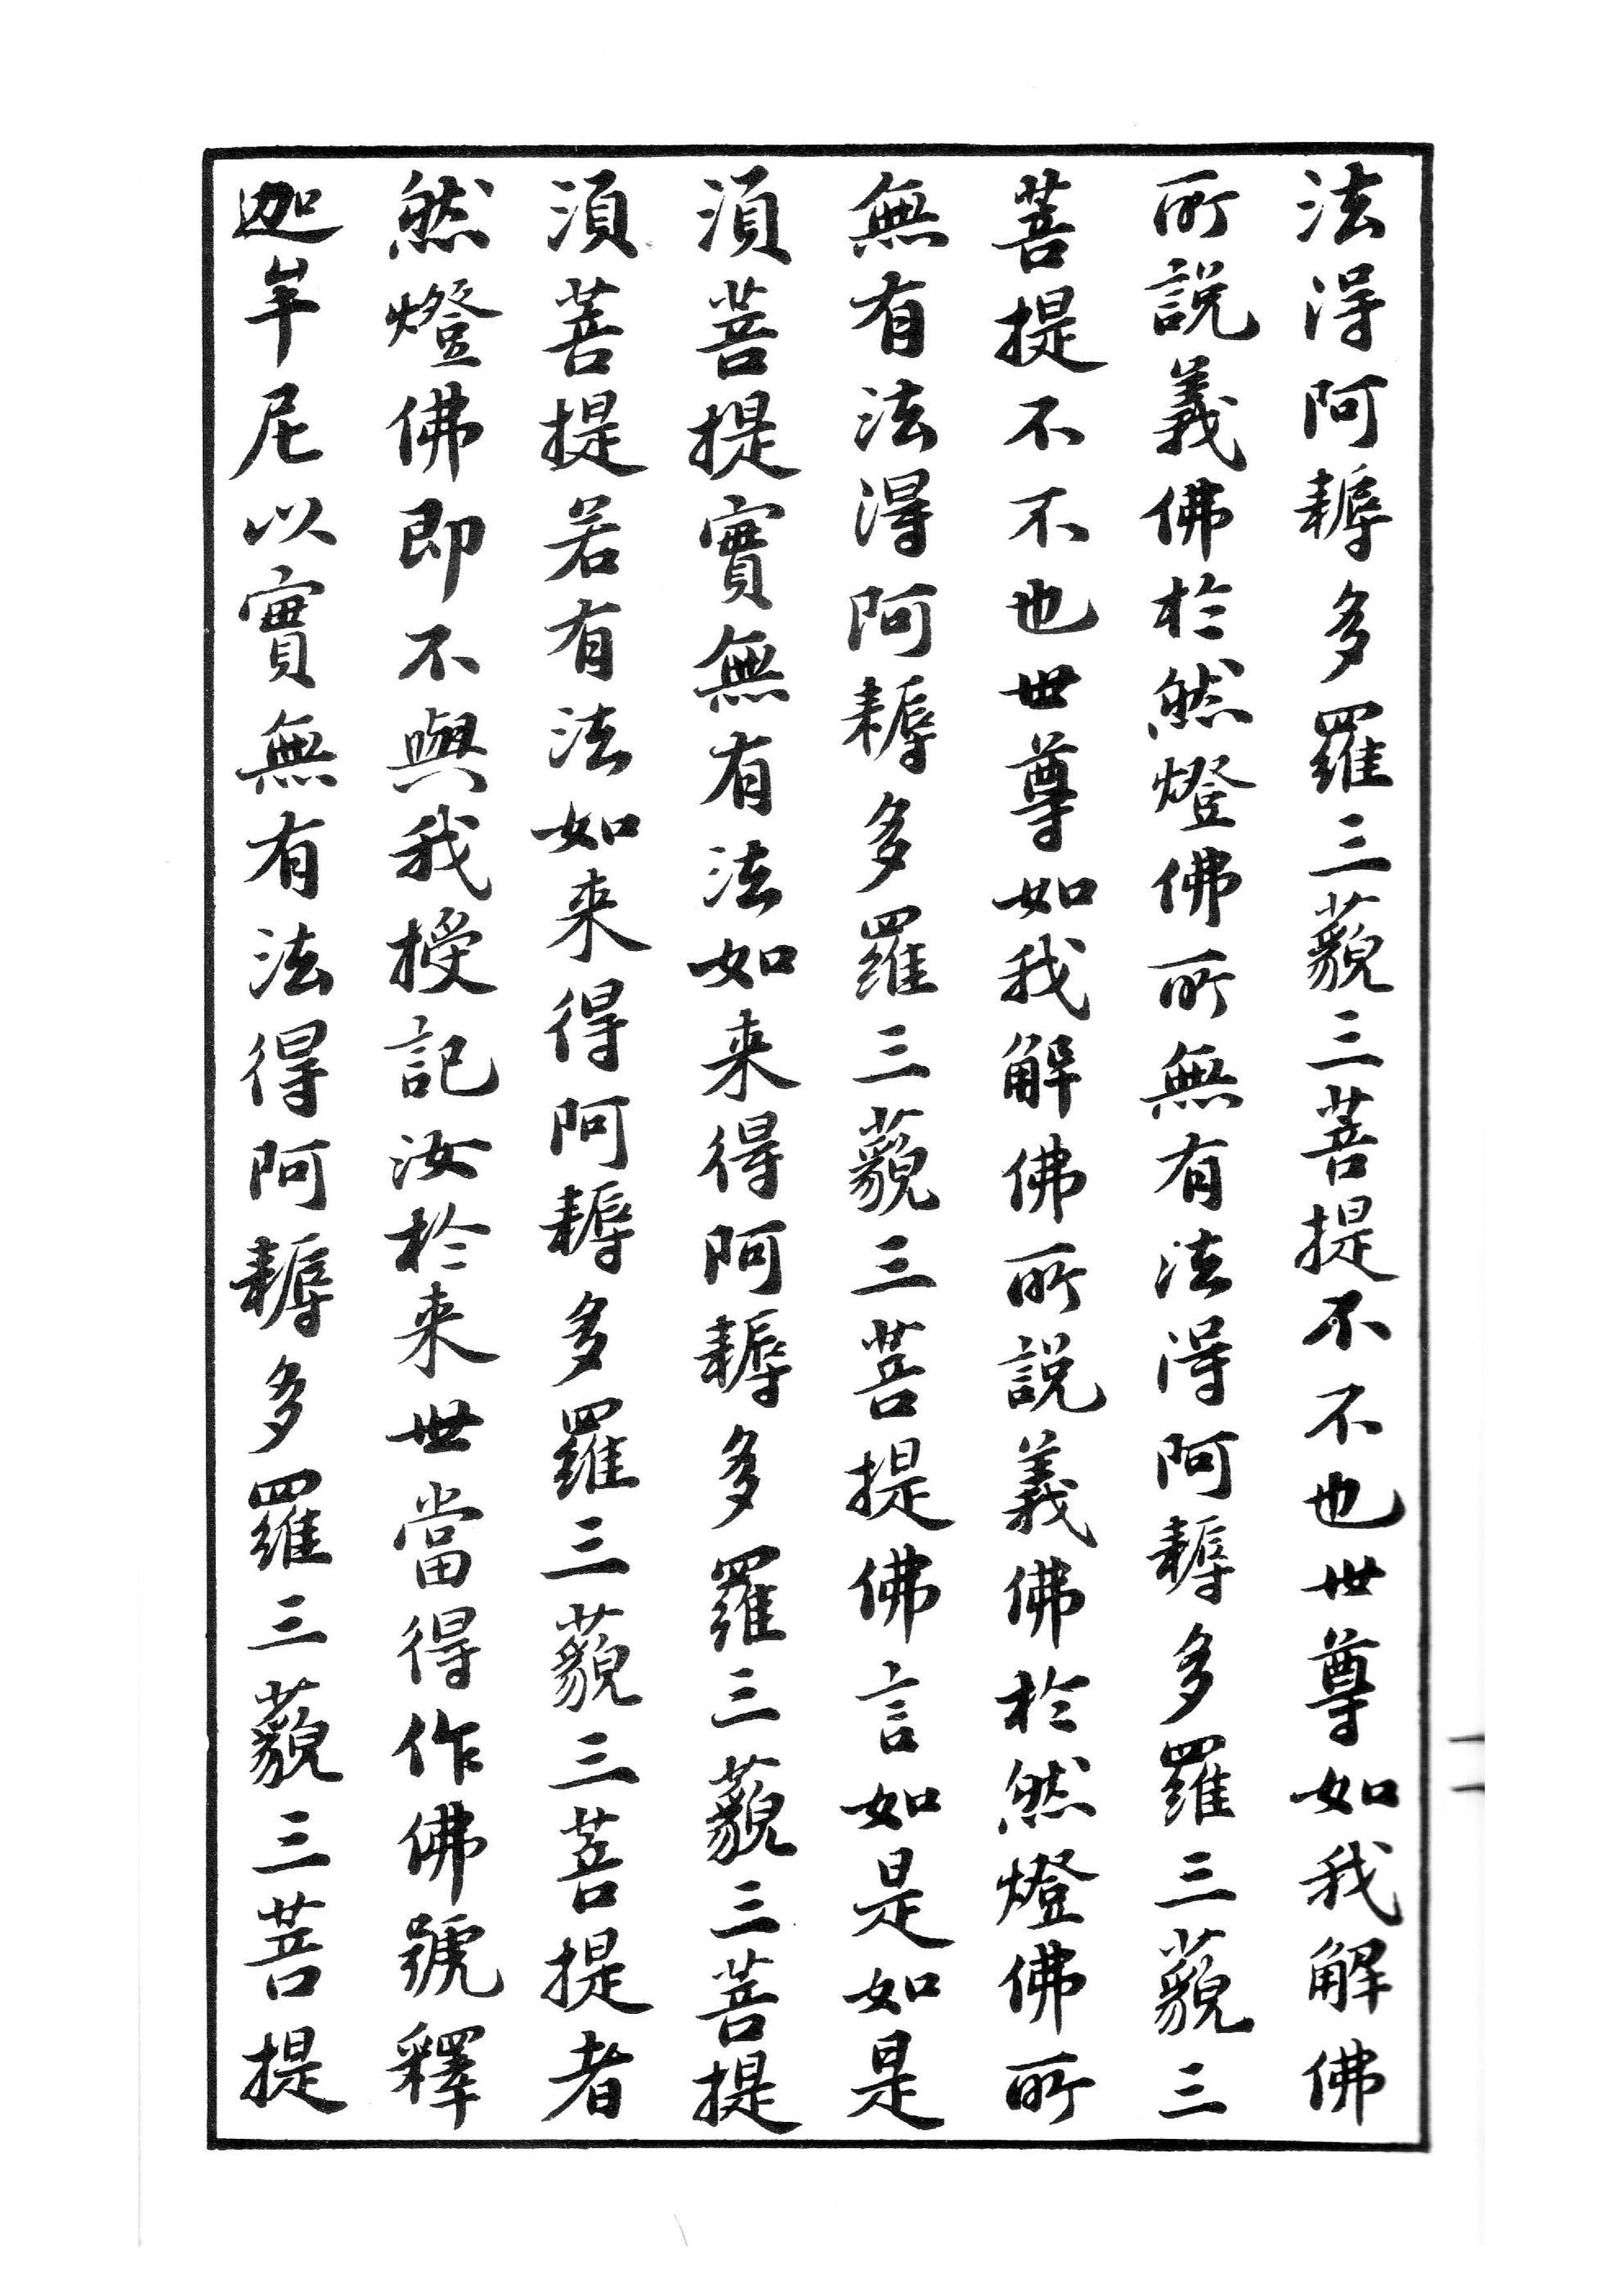 法得阿耨多羅三藐三菩提不不也世尊如我解佛
所說義佛於然燈佛所無有法得阿耨多羅三藐三
菩提不不也世尊如我解佛所說義佛於然燈佛所
無有法得阿耨多羅三藐三菩提佛言如是如是
須菩提實無有法如来得阿耨多羅三藐三菩提
須菩提若有法如来得阿耨多羅三藐三菩提者
然燈佛即不與我授記汝於来世當得作佛號釋
迦牟尼以實無有法得阿耨多羅三藐三菩提